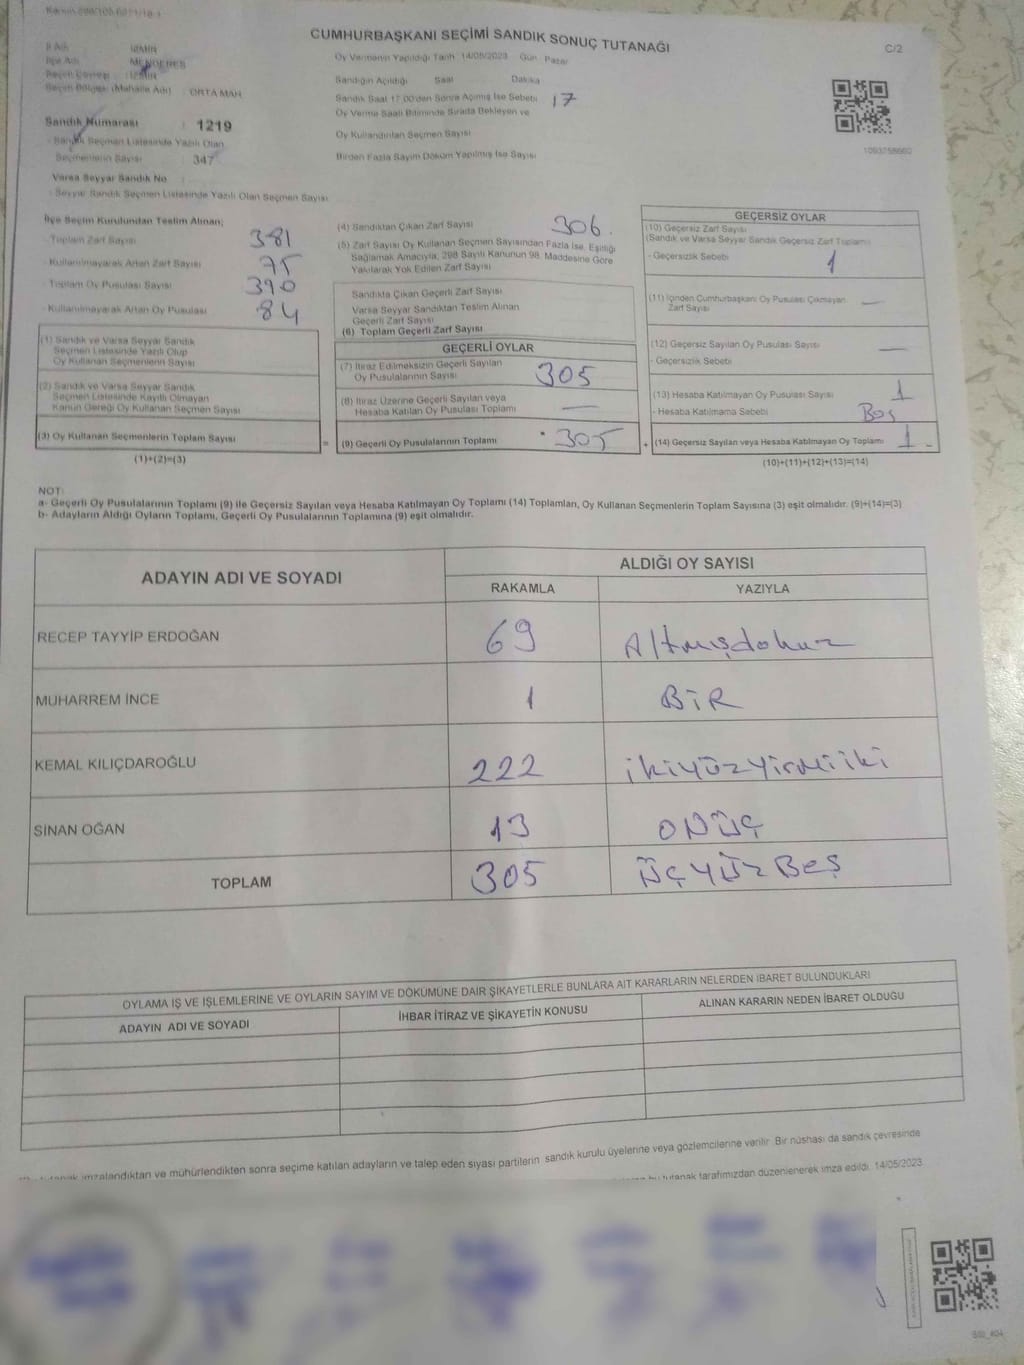 CUMHURBAŞKANI SEÇİMİ SANDIK SONUÇ TUTANAĞI
C/2
İl Adı : İZMİR
İlçe Adı : MENDERES
Seçim Çevresi : İZMİR
Seçim Bölgesi (Mahalle Adı) : ORTA MAH
Sandık Numarası : 1219
- Sandık Seçmen Listesinde Yazılı Olan
Seçmenlerin Sayısı : 347
Varsa Seyyar Sandık No
- Seyyar Sandık Seçmen Listesinde Yazılı Olan Seçmen Sayısı
Oy Vermenin Yapıldığı Tarih 14/05/2023 Gün Pazar
Sandığın Açıldığı Saat Dakika
Sandık Saat 17.00'den Sonra Açılmış İse Sebebi 17
Oy Verme Saati Bitiminde Sırada Bekleyen ve
Oy Kullandırılan Seçmen Sayısı
Birden Fazla Sayım Döküm Yapılmış İse Sayısı
1093758660
İlçe Seçim Kurulundan Teslim Alınan;
- Toplam Zarf Sayısı 381
- Kullanılmayarak Artan Zarf Sayısı 75
- Toplam Oy Pusulası Sayısı 390
- Kullanılmayarak Artan Oy Pusulası 84
(1) Sandık ve Varsa Seyyar Sandık
Seçmen Listesinde Yazılı Olup
Oy Kullanan Seçmenlerin Sayısı
(2) Sandık ve Varsa Seyyar Sandık
Seçmen Listesinde Kayıtlı Olmayan
Kanun Gereği Oy Kullanan Seçmen Sayısı
(3) Oy Kullanan Seçmenlerin Toplam Sayısı =
(1)+(2)=(3)
(4) Sandıktan Çıkan Zarf Sayısı 306
(5) Zarf Sayısı Oy Kullanan Seçmen Sayısından Fazla İse, Eşitliği
Sağlamak Amacıyla, 298 Sayılı Kanunun 98. Maddesine Göre
Yakılarak Yok Edilen Zarf Sayısı
Sandıkta Çıkan Geçerli Zarf Sayısı
Varsa Seyyar Sandıktan Teslim Alınan
Geçerli Zarf Sayısı
(6) Toplam Geçerli Zarf Sayısı
GEÇERLİ OYLAR
(7) İtiraz Edilmeksizin Geçerli Sayılan
Oy Pusulalarının Sayısı 305
(8) İtiraz Üzerine Geçerli Sayılan veya
Hesaba Katılan Oy Pusulası Toplamı —
(9) Geçerli Oy Pusulalarının Toplamı 305 +
GEÇERSİZ OYLAR
(10) Geçersiz Zarf Sayısı
(Sandık ve Varsa Seyyar Sandık Geçersiz Zarf Toplamı)
- Geçersizlik Sebebi 1
(11) İçinden Cumhurbaşkanı Oy Pusulası Çıkmayan
Zarf Sayısı —
(12) Geçersiz Sayılan Oy Pusulası Sayısı —
- Geçersizlik Sebebi
(13) Hesaba Katılmayan Oy Pusulası Sayısı 1
- Hesaba Katılmama Sebebi Boş
(14) Geçersiz Sayılan veya Hesaba Katılmayan Oy Toplamı 1
(10)+(11)+(12)+(13)=(14)
NOT:
a- Geçerli Oy Pusulalarının Toplamı (9) ile Geçersiz Sayılan veya Hesaba Katılmayan Oy Toplamı (14) Toplamları, Oy Kullanan Seçmenlerin Toplam Sayısına (3) eşit olmalıdır. (9)+(14)=(3)
b- Adayların Aldığı Oyların Toplamı, Geçerli Oy Pusulalarının Toplamına (9) eşit olmalıdır.
ADAYIN ADI VE SOYADI
ALDIĞI OY SAYISI
RAKAMLA YAZIYLA
RECEP TAYYİP ERDOĞAN 69 Altmışdokuz
MUHARREM İNCE 1 BİR
KEMAL KILIÇDAROĞLU 222 ikiyüzyirmiiki
SİNAN OĞAN 13 ONÜÇ
TOPLAM 305 ÜÇYÜZBEŞ
OYLAMA İŞ VE İŞLEMLERİNE VE OYLARIN SAYIM VE DÖKÜMÜNE DAİR ŞİKAYETLERLE BUNLARA AİT KARARLARIN NELERDEN İBARET BULUNDUKLARI
ADAYIN ADI VE SOYADI İHBAR İTİRAZ VE ŞİKAYETİN KONUSU ALINAN KARARIN NEDEN İBARET OLDUĞU
imzalandıktan ve mühürlendikten sonra seçime katılan adayların ve talep eden siyasi partilerin sandık kurulu üyelerine veya gözlemcilerine verilir. Bir nüshası da sandık çevresinde
bu tutanak tarafımızdan düzenlenerek imza edildi. 14/05/2023